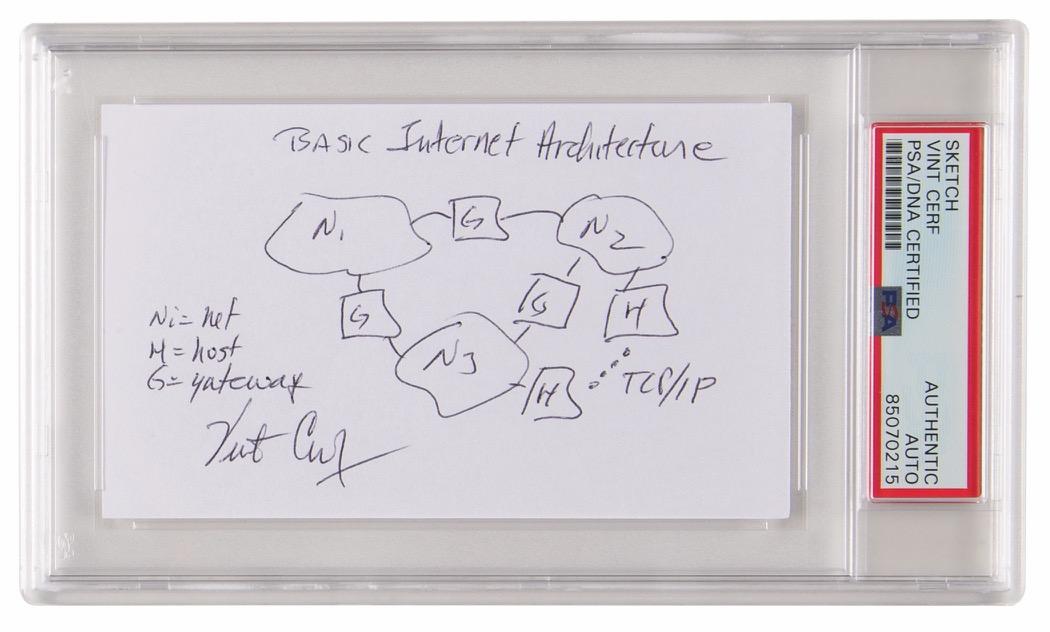 BASIC Internet Architecture
N1
G
N2
G
G
H
N3
H
TCP/IP
Ni = net
H = host
G = gateway
Vint Cerf
SKETCH
VINT CERF
PSA/DNA CERTIFIED
PSA
AUTHENTIC
AUTO
85070215